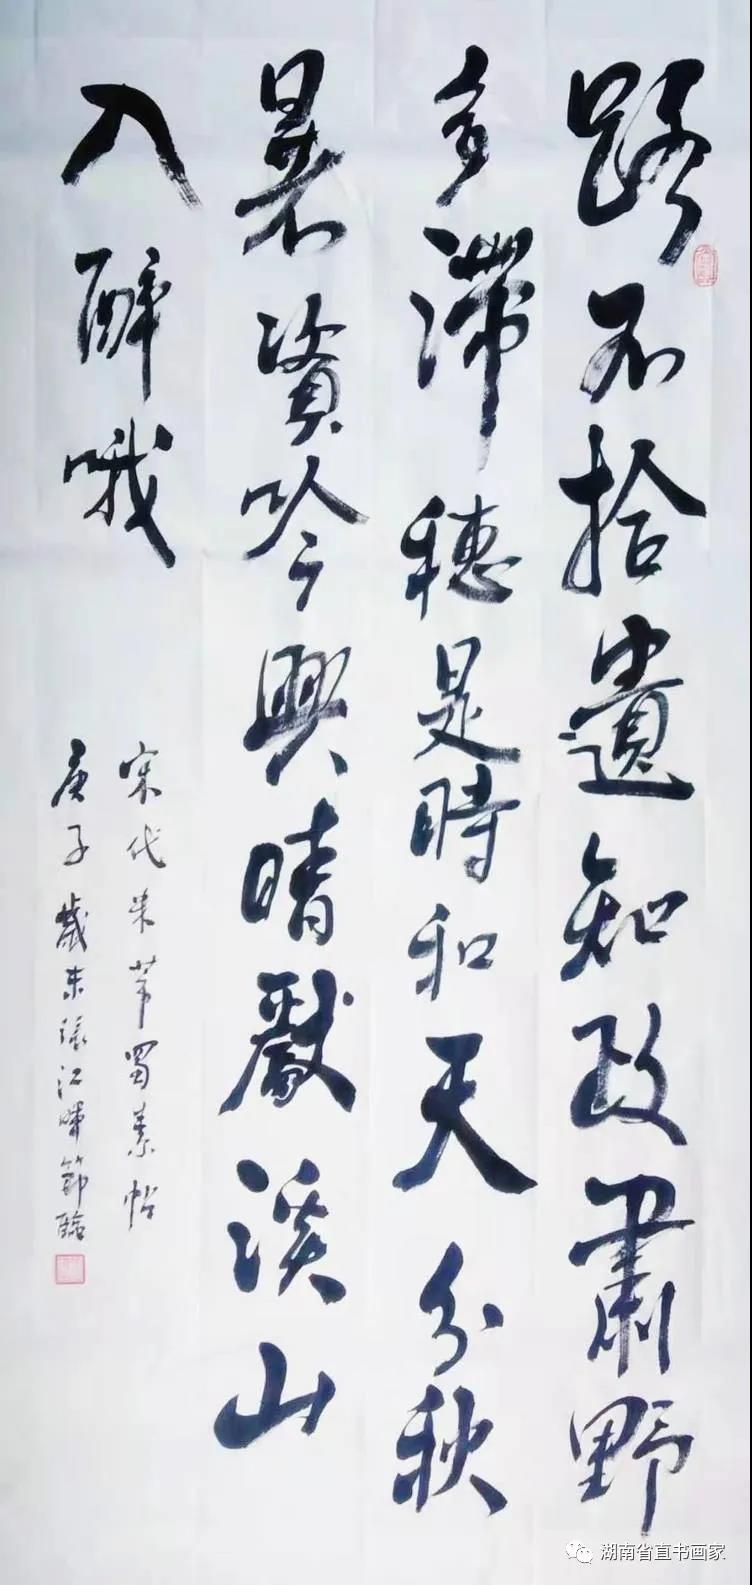 路不拾遺知政肅野
多滯穗是時和天分秋
暑資吟興晴獻溪山
入醉哦
宋代米芾蜀素帖
庚子歲末張江暉節臨
湖南省直书画家